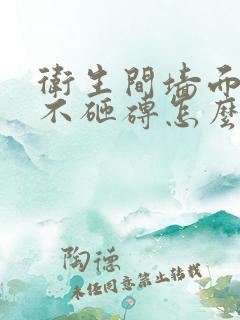 衛生間墻面
不砸磚怎麼
陶德
未經同意禁止轉載